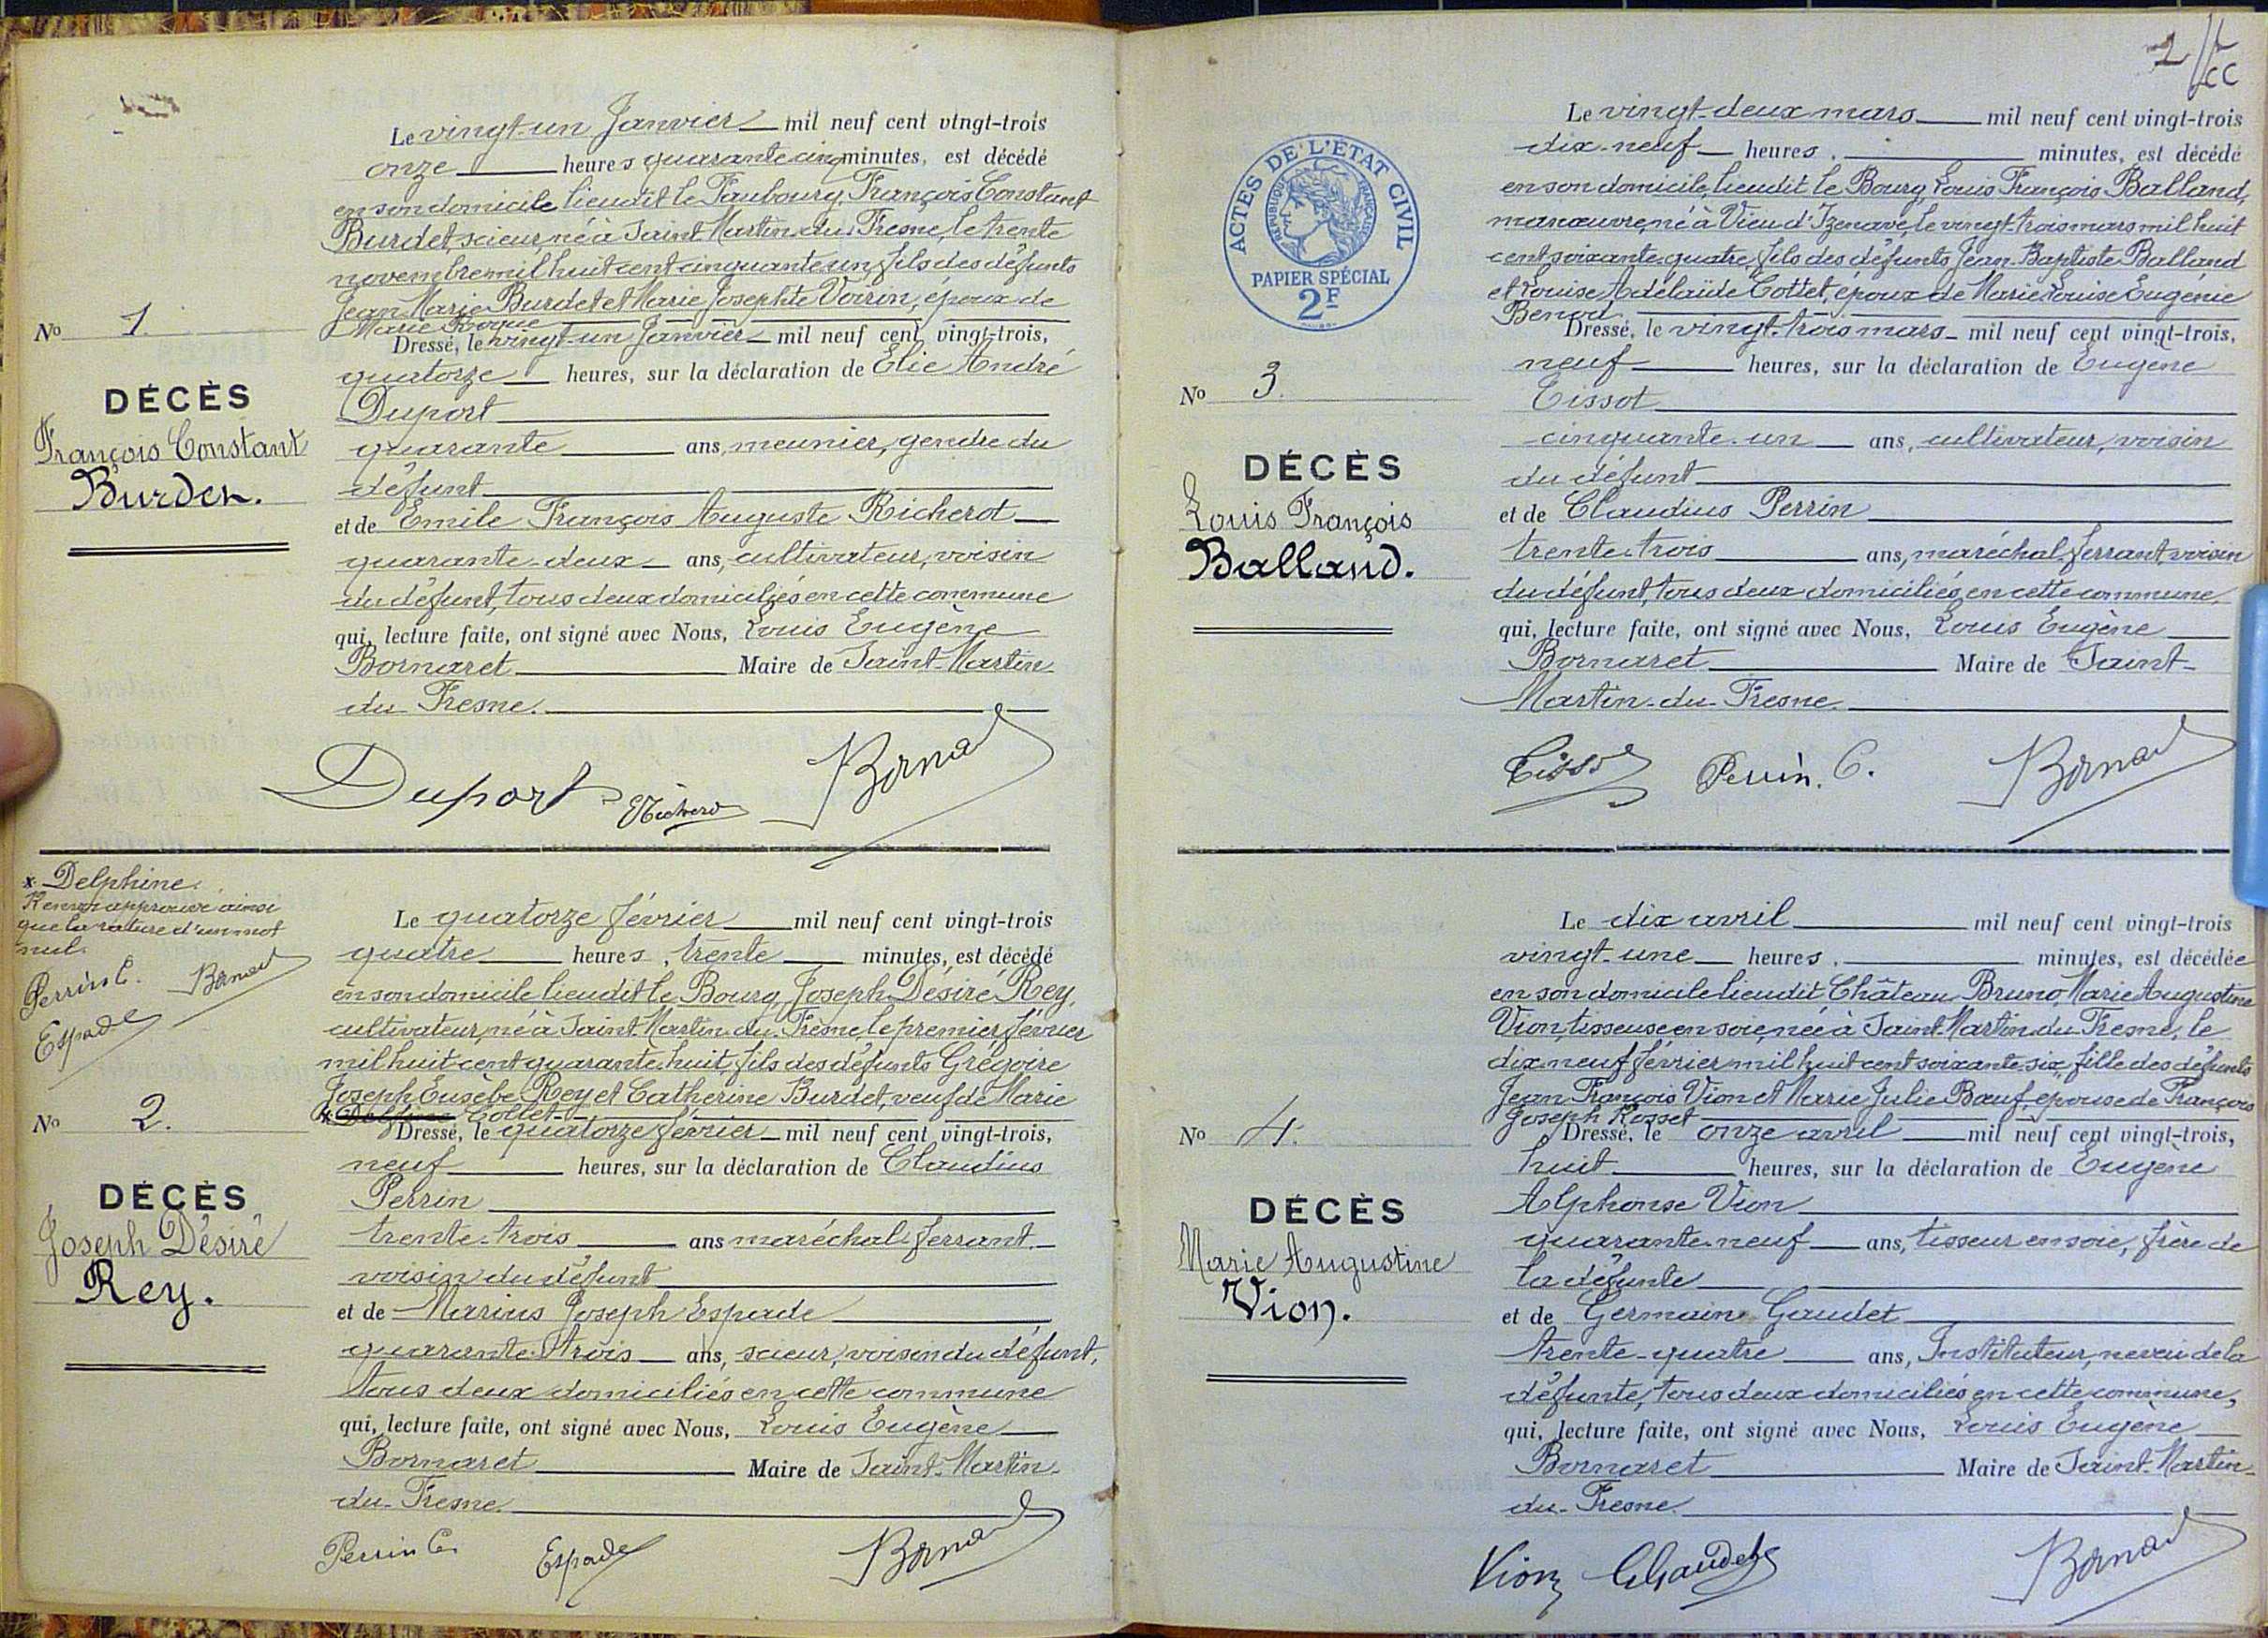 Le vingt-un Janvier mil neuf cent vingt-trois
onze heures quarante cinq minutes, est décédé
en son domicile lieudit le Faubourg, François Constant
Burdet, scieur, né à Saint-Martin-du-Fresne, le trente
novembre mil huit cent cinquante un, fils des défunts
Jean Marie Burdet et Marie Josephte Voirin, époux de
Marie Roque
Dressé, le vingt-un Janvier mil neuf cent vingt-trois,
quatorze heures, sur la déclaration de Elie André
Duport
quarante ans, meunier, gendre du
défunt
et de Emile François Auguste Richerot
quarante-deux ans, cultivateur, voisin
du défunt, tous deux domiciliés en cette commune
qui, lecture faite, ont signé avec Nous, Louis Eugène
Bornaret Maire de Saint-Martin
du-Fresne.
No 1.
DÉCÈS
François Constant
Burdet.
Duport
x Delphine.
Renvoi approuvé ainsi
que la rature d'un mot
nul.
Perrin C.
Espade
Le quatorze février mil neuf cent vingt-trois
quatre heures, trente minutes, est décédé
en son domicile lieudit le Bourg, Joseph Désiré Rey,
cultivateur, né à Saint-Martin-du-Fresne, le premier février
mil huit cent quarante-huit, fils des défunts Grégoire
Joseph Eusèbe Rey et Catherine Burdet, veuf de Marie
x Collet
Dressé, le quatorze février mil neuf cent vingt-trois,
neuf heures, sur la déclaration de Claudius
Perrin
trente-trois ans maréchal-ferrant
voisin du défunt
et de Marius Joseph Espade
quarante-trois ans, scieur, voisin du défunt,
tous deux domiciliés en cette commune
qui, lecture faite, ont signé avec Nous, Louis Eugène
Bornaret Maire de Saint-Martin-
du-Fresne.
No 2.
DÉCÈS
Joseph Désiré
Rey.
Perrin C. Espade
2
CC
ACTES DE L'ÉTAT CIVIL
RÉPUBLIQUE FRANÇAISE
PAPIER SPÉCIAL
2F
Le vingt-deux mars mil neuf cent vingt-trois
dix-neuf heures, minutes, est décédé
en son domicile, lieudit le Bourg, Louis François Balland,
manœuvre, né à Vieu d'Izenave, le vingt-trois mars mil huit
cent soixante-quatre, fils des défunts Jean-Baptiste Balland
et Louise Adélaïde Cottet, époux de Marie Louise Eugénie
Benod
Dressé, le vingt-trois mars mil neuf cent vingt-trois,
neuf heures, sur la déclaration de Eugène
Tissot
cinquante-un ans, cultivateur, voisin
du défunt
et de Claudius Perrin
trente-trois ans, maréchal-ferrant, voisin
du défunt, tous deux domiciliés en cette commune,
qui, lecture faite, ont signé avec Nous, Louis Eugène
Bornaret Maire de Saint-
Martin-du-Fresne.
No 3.
DÉCÈS
Louis François
Balland.
Perrin. C.
Le dix avril mil neuf cent vingt-trois
vingt-une heures, minutes, est décédée
en son domicile lieudit Château Bruno, Marie Augustine
Vion, tisseuse en soie, née à Saint-Martin-du-Fresne, le
dix-neuf février mil huit cent soixante-six, fille des défunts
Jean François Vion et Marie Julie Bœuf, épouse de François
Joseph Rosset
Dressé, le onze avril mil neuf cent vingt-trois,
huit heures, sur la déclaration de Eugène
Alphonse Vion
quarante-neuf ans, tisseur en soie, frère de
la défunte
et de Germain Gaudet
trente-quatre ans, Instituteur, neveu de la
défunte, tous deux domiciliés en cette commune,
qui, lecture faite, ont signé avec Nous, Louis Eugène
Bornaret Maire de Saint-Martin-
du-Fresne
No 4.
DÉCÈS
Marie Augustine
Vion.
Vion GGaudet